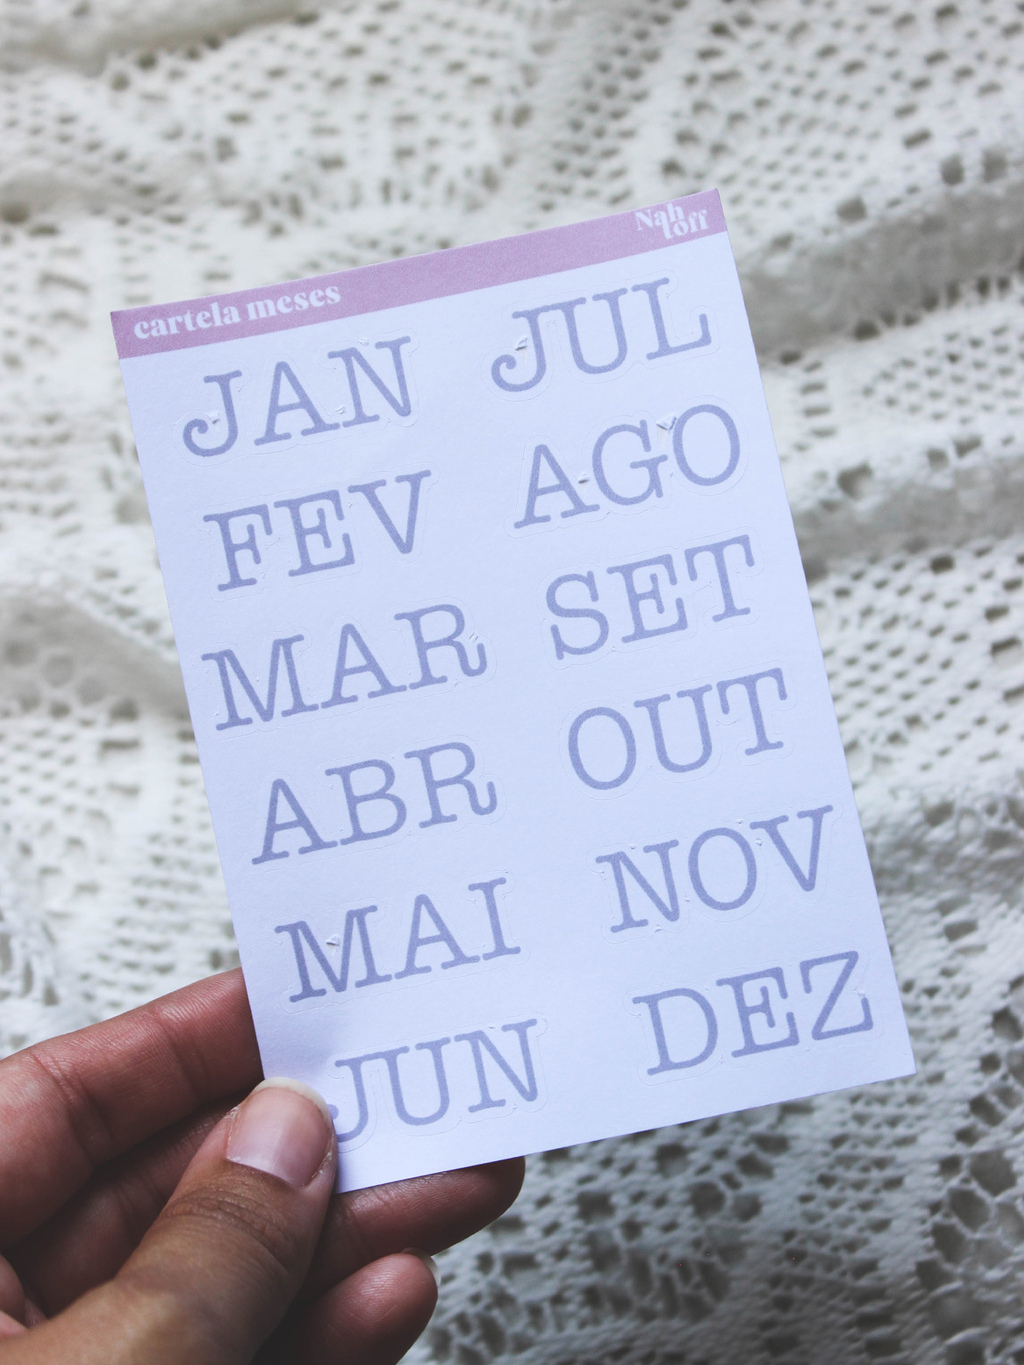 cartela meses
Nah
toff
JAN
FEV
MAR
ABR
MAI
JUN
JUL
AGO
SET
OUT
NOV
DEZ